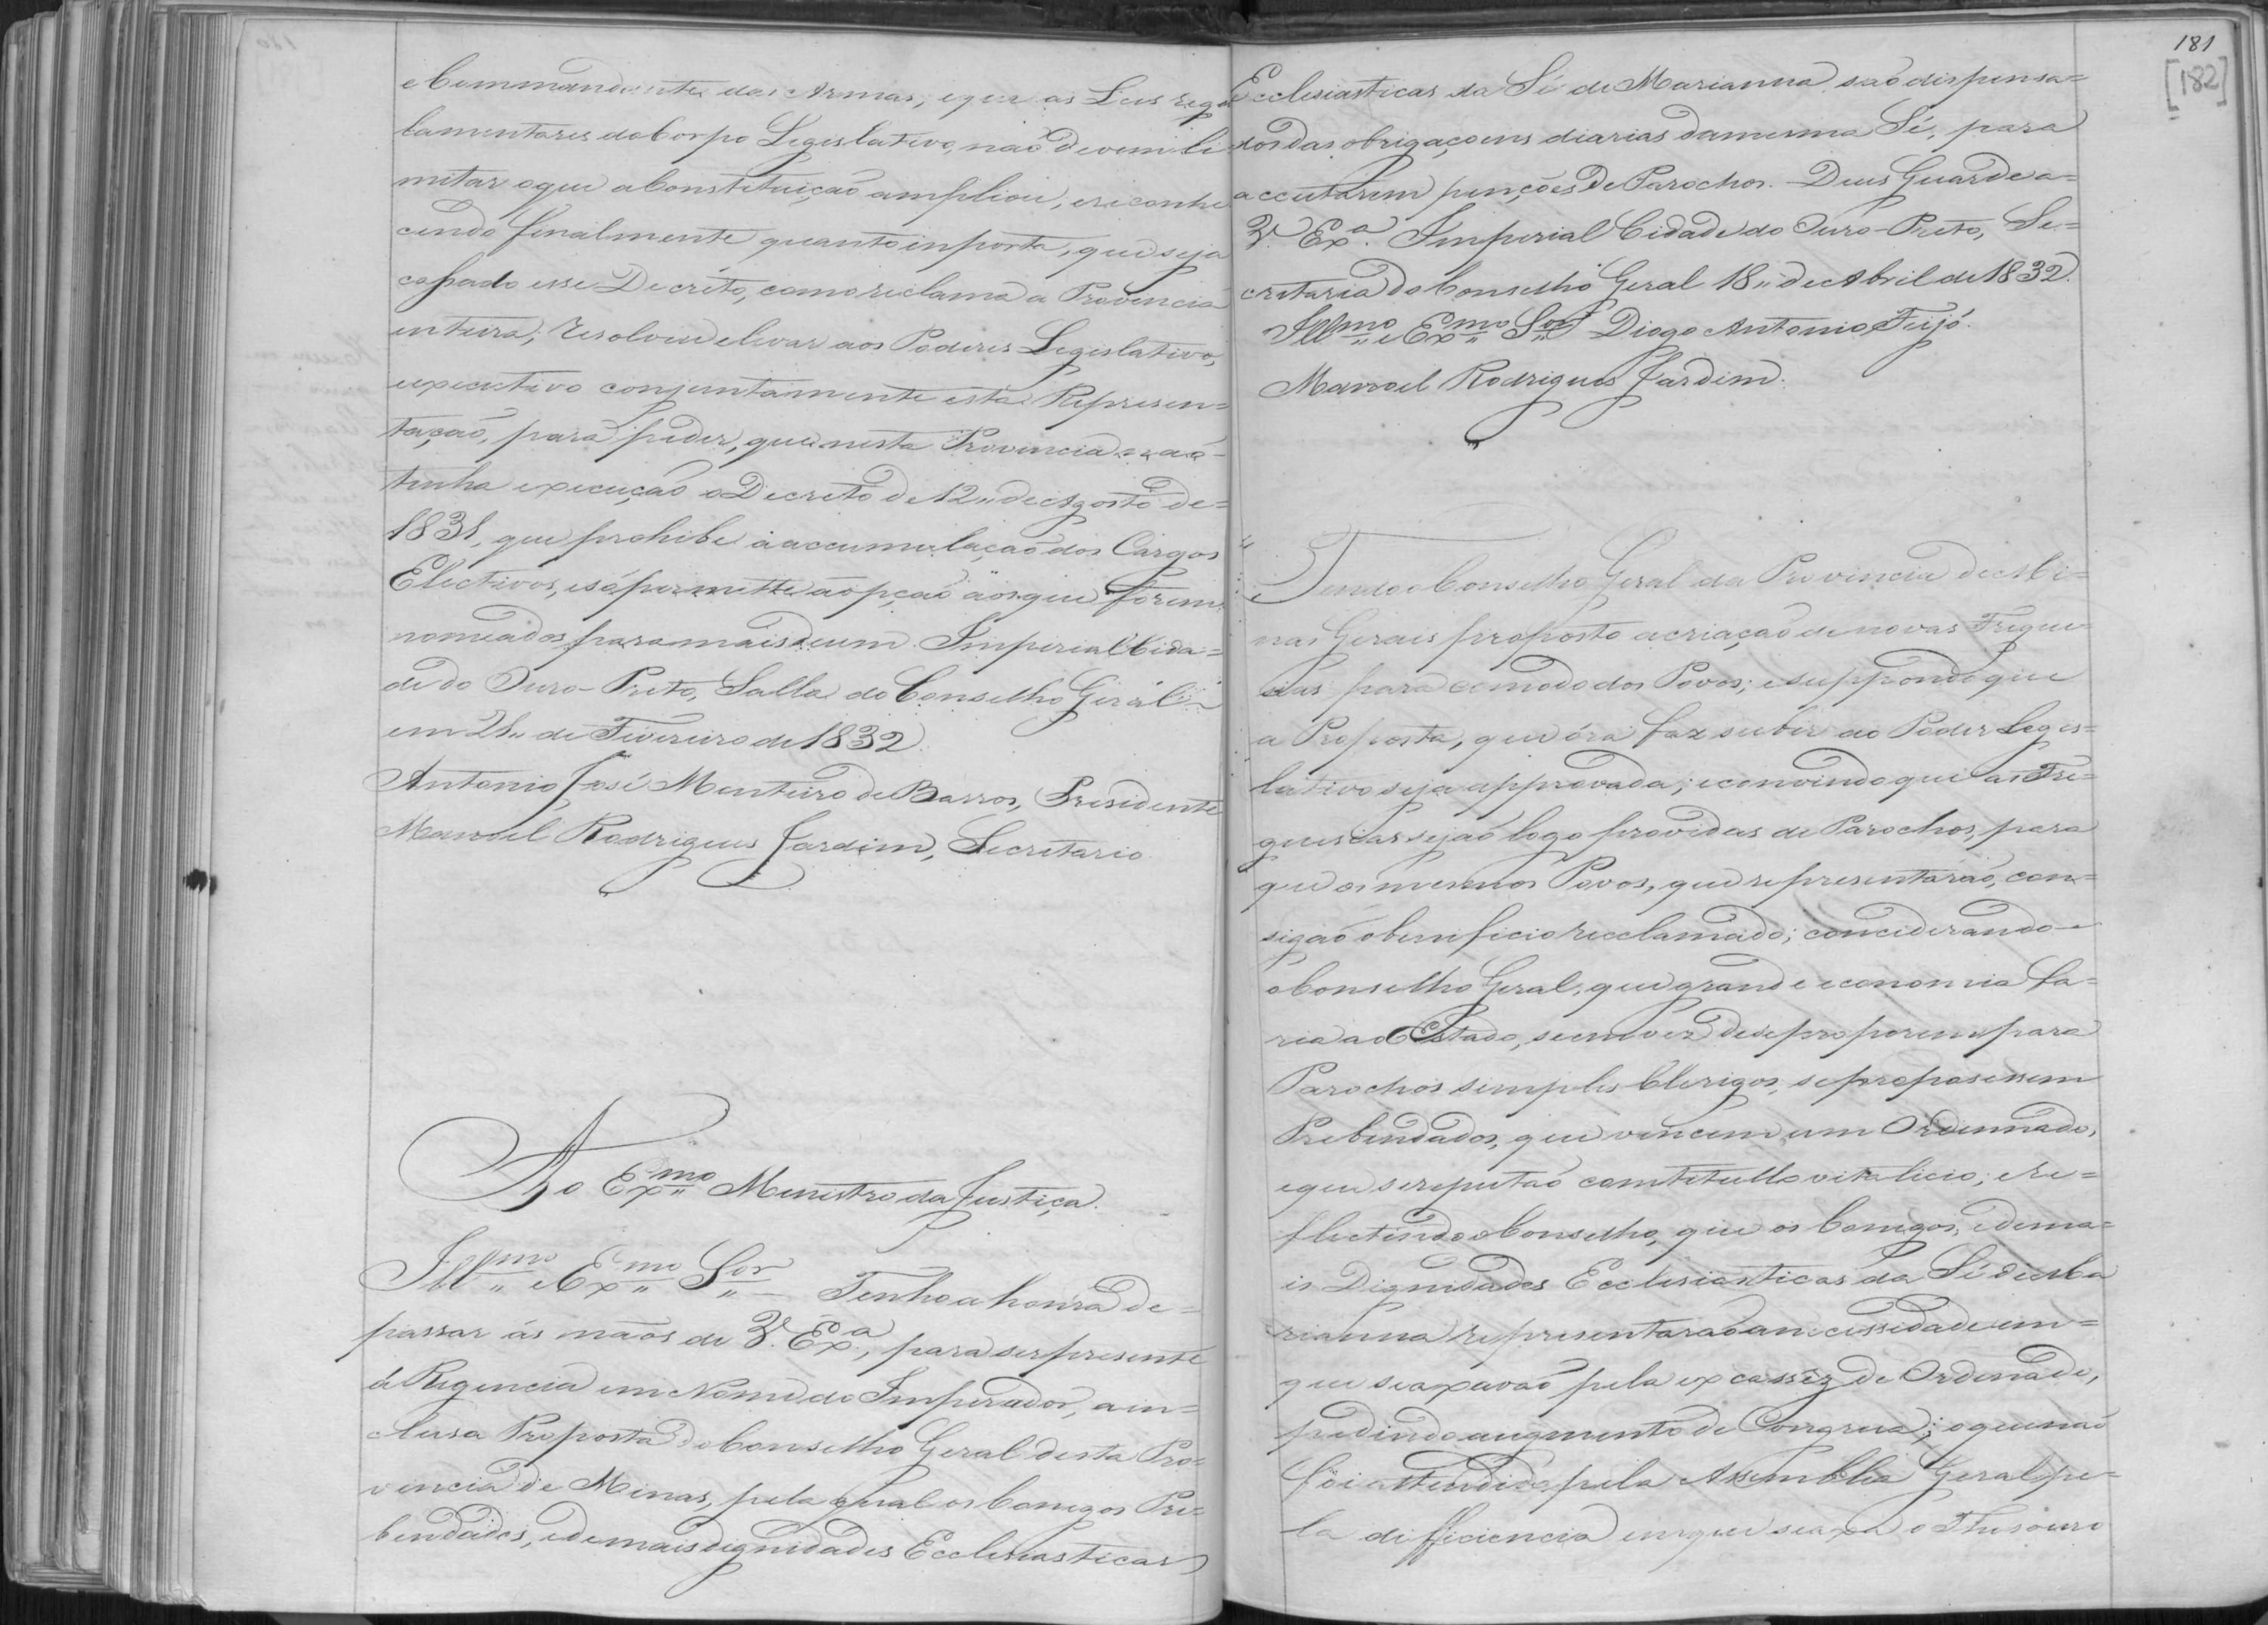 eCommandante das Armas, eque as Leis regu
lamentares do Corpo Legislativo, naõ devem li
mitar oque aConstituiçaõ ampliou, ereconhe
cendo finalmente quanto inporta, que seja
cassado esse Decreto, como reclama a Provincia
inteira; resolveu elevar aos Poderes Legislativo,
eexecutivo conjuntamente esta Represen=
taçaõ, para pedir, que nesta Provincia naõ
tenha execuçaõ o Decreto de 12,, de Agosto de=
1831, que prohibe aaccumulaçaõ dos Cargos
Electivos, esó permitte aopçaõ áos que forem
nomeados para mais deum. Imperial Cida=
de do Ouro-Preto, Salla do Conselho Geral
em 21,, de Fevereiro de 1832.
Antonio José Monteiro de Barros, Presidente
Manoel Rodrigues Jardim, Secretario.
Ao Ex.mo Ministro da Justiça.
Ill.mo e Ex.mo Sor Tenho a honra de=
passar ás mãos de V. Ex.a, para ser presente
á Regencia em Nome do Imperador, a in=
clusa Proposta do Conselho Geral desta Pro=
vincia de Minas, pela qual os Conegos Pre=
bendados, edemais dignidades Ecclesiasticas
181
[182]
Ecclesiasticas da Sé de Marianna saõ dispensa=
dos das obrigaçoens diarias damesma Sé, para
acceitarem funções de Parochos. Deus Guarde a=
V. Ex.a Imperial Cidade do Ouro-Preto, Se=
cretaria do Conselho Geral 18,, de Abril de 1832.
Ill.mo e Ex.mo Sor Diogo Antonio Feijó.
Manoel Rodrigues Jardim.
Tendo o Conselho Geral da Provincia de Mi=
nas Gerais proposto acriaçaõ de novas Fregue=
sias para comodo dos Povos; esuppondo que
a Proposta, que óra faz subir ao Poder Legis=
lativo seja approvada; econvindo que as Fre=
guesias sejaõ logo providas de Parochos, para
que os mesmos Povos, que representaraõ, con=
sigaõ obeneficio recclamado; conciderando
oConselho Geral, que grande economia fa=
ria ao Estado, se em vez de se proporem para
Parochos simples Clerigos, se proposessem
Prebendados, que vencem um Ordennado,
eque se reputaõ comtitullo vitalicio; e re=
flectindo oConselho, que os Conegos, edema=
is Dignidades Ecclesiasticas da Sé de Ma
rianna representaraõ anecessidade em=
que seaxavaõ pela excassez de Ordenado,
pedindo augmento de Congrua; oque naõ
foi attendido pela Assemblea Geral pe=
la difficiencia em que se axa o Thesouro